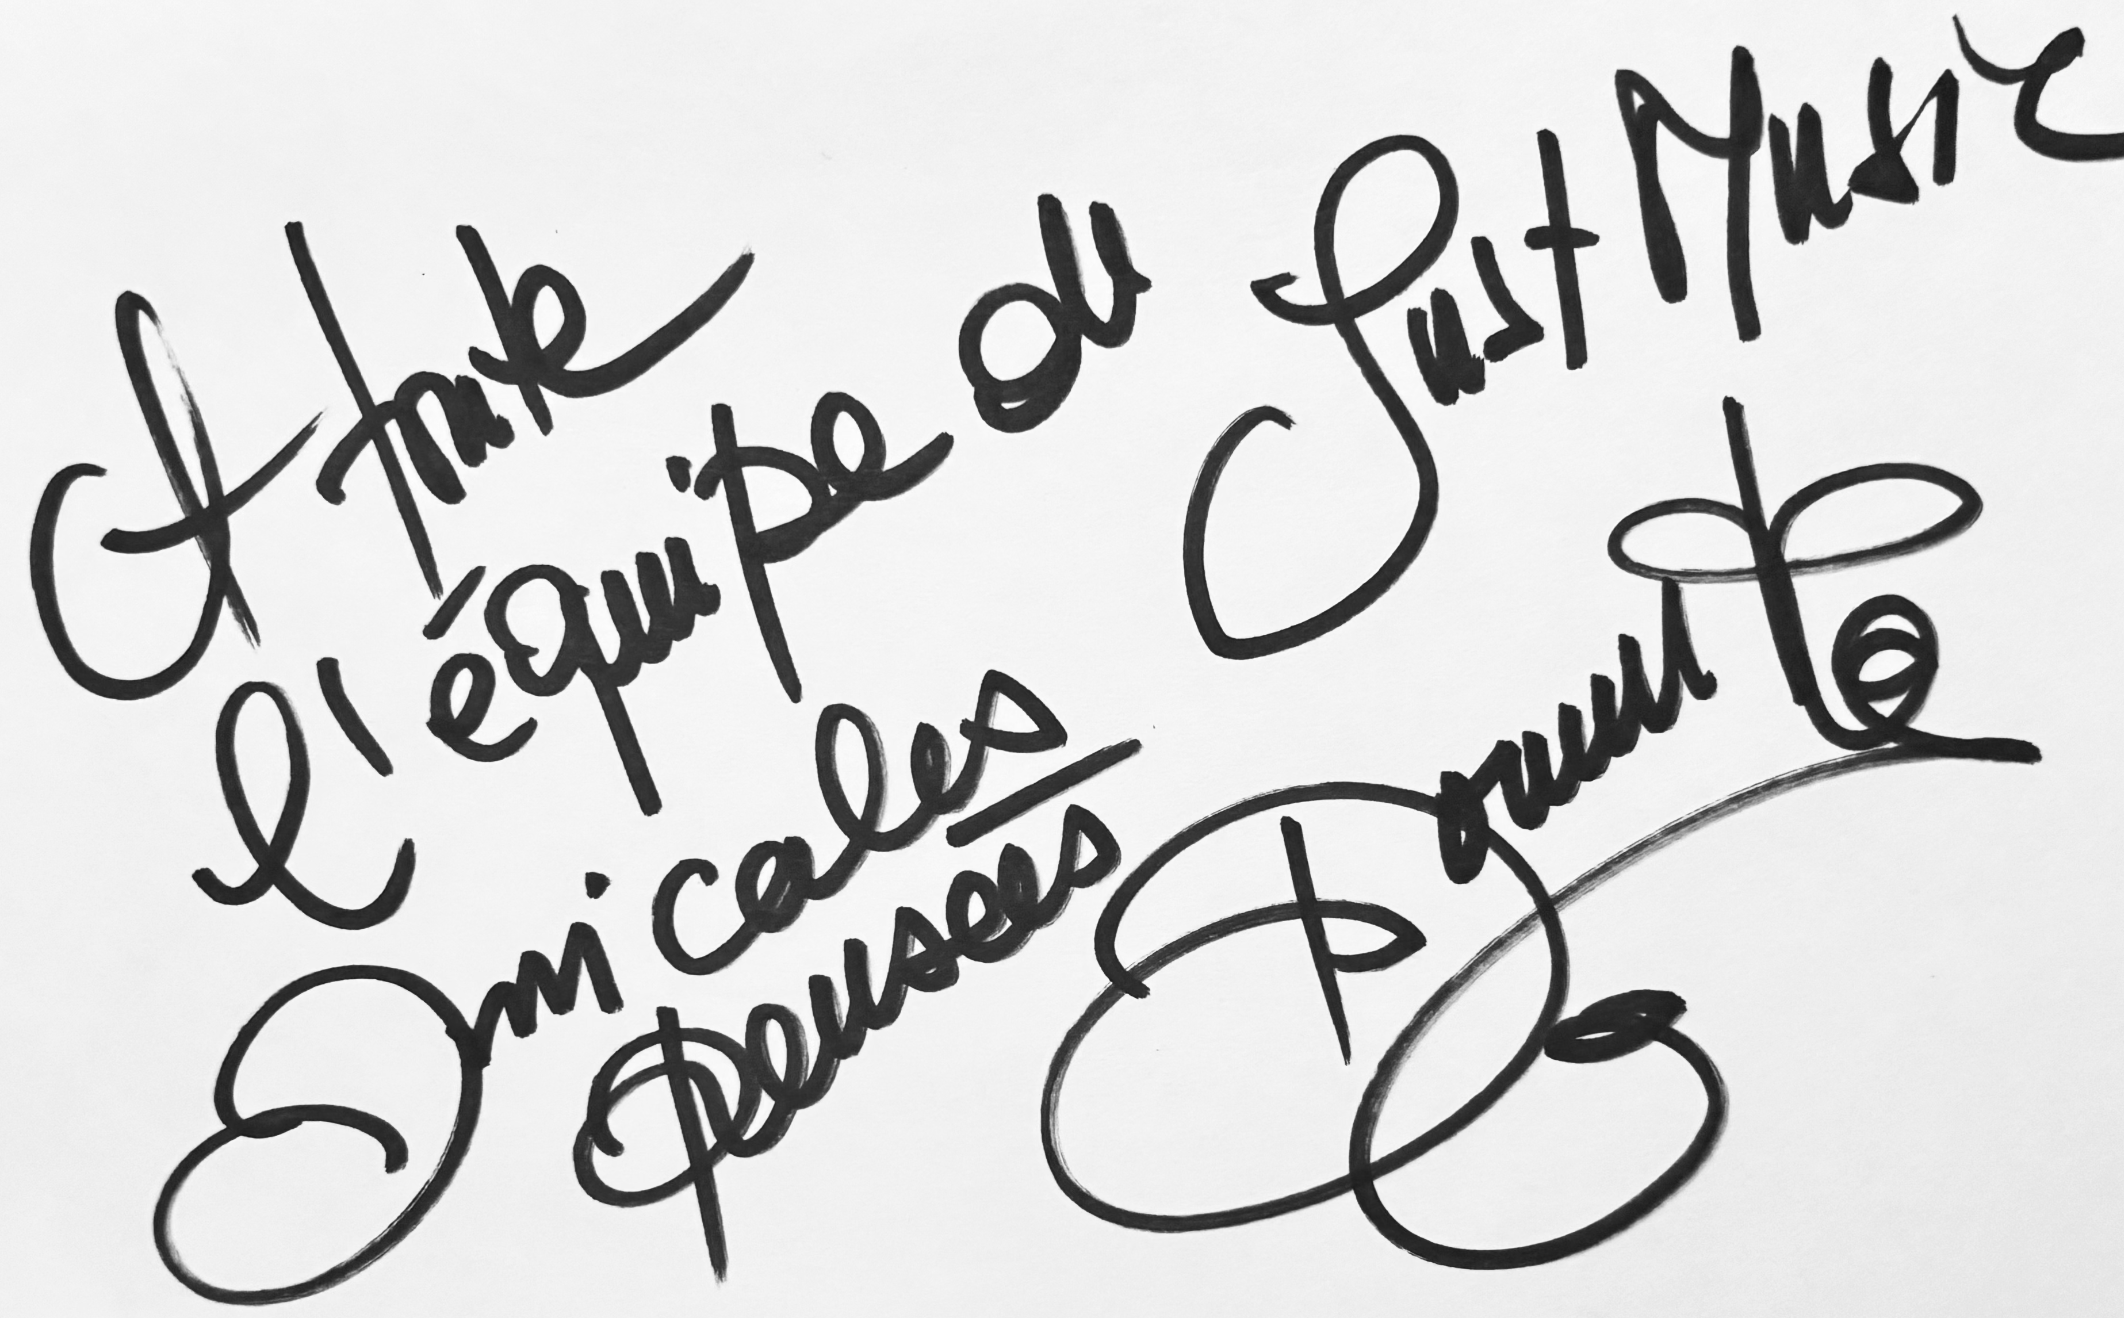 A toute
l'équipe du
Just Music
Amicales
pensées